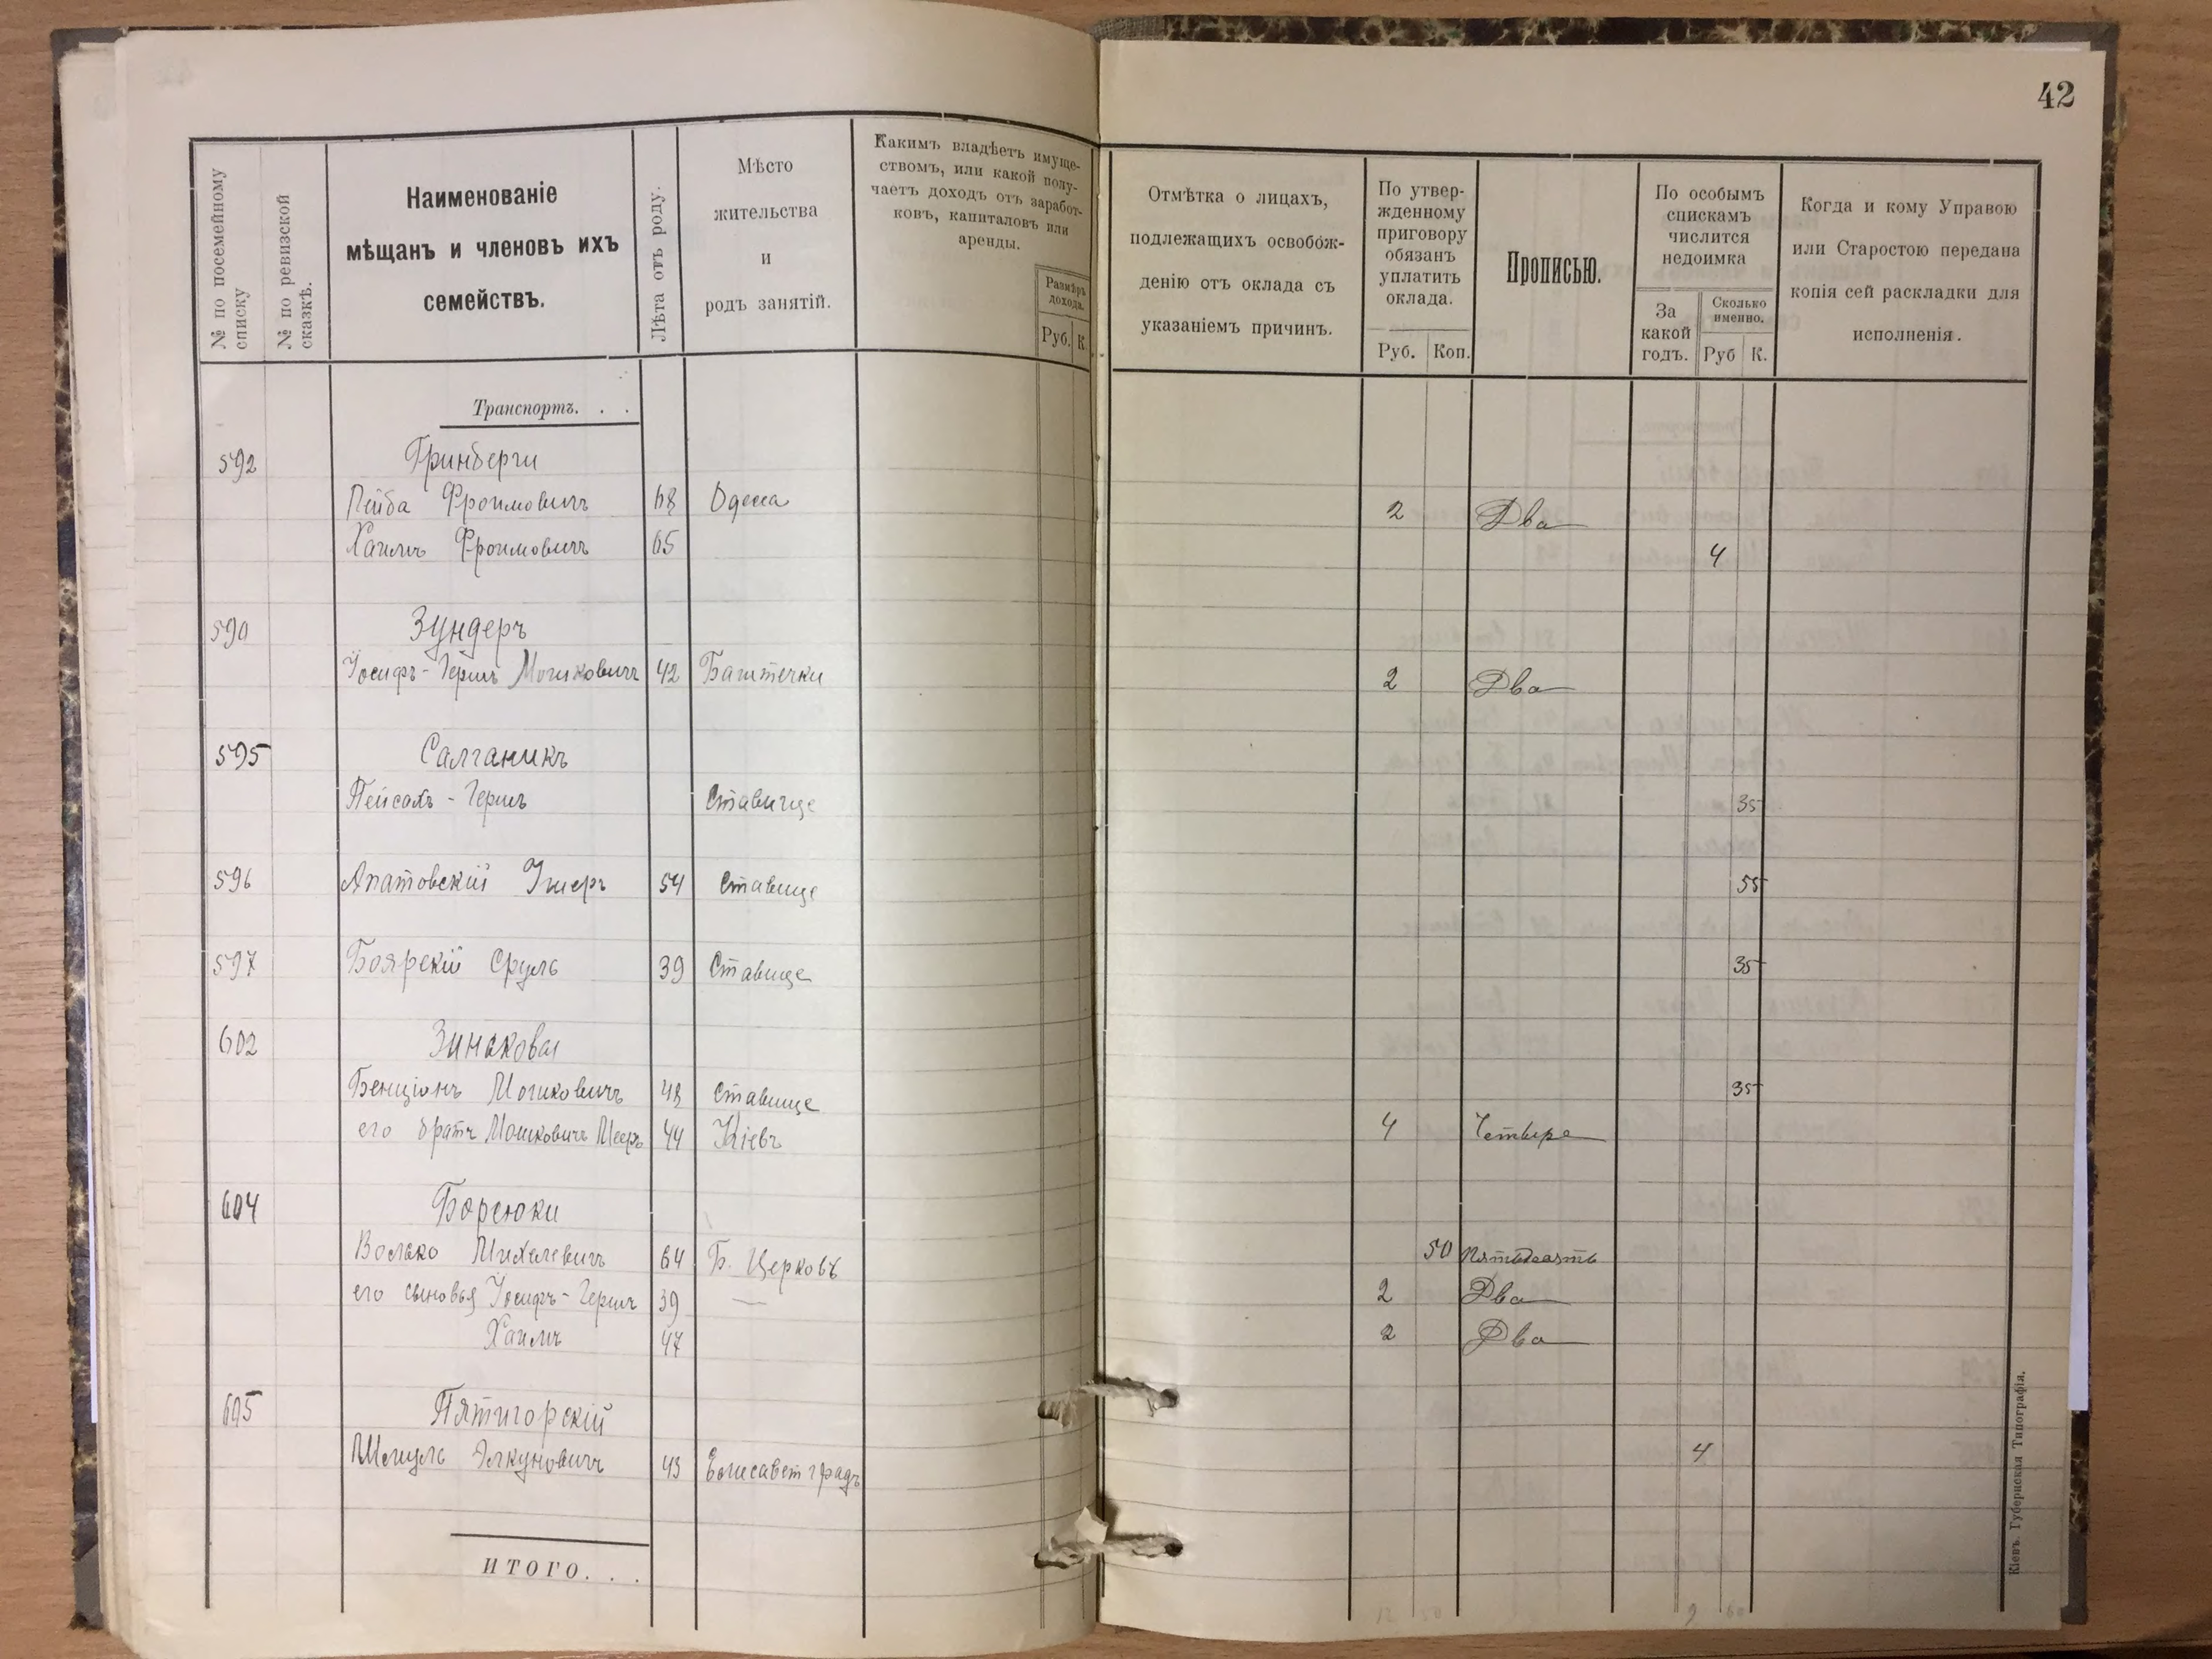 42
№ по посемейному списку
№ по ревизской сказкѣ.
Наименованіе
мѣщанъ и членовъ ихъ
семействъ.
Лѣта отъ роду.
Мѣсто
жительства
и
родъ занятій.
Какимъ владѣетъ имуще-
ствомъ, или какой полу-
чаетъ доходъ отъ заработ-
ковъ, капиталовъ или
аренды.
Размѣръ
дохода.
Руб. К.
Отмѣтка о лицахъ,
подлежащихъ освобож-
денію отъ оклада съ
указаніемъ причинъ.
По утвер-
жденному
приговору
обязанъ
уплатить
оклада.
Руб. Коп.
Прописью.
По особымъ
спискамъ
числится
недоимка
За
какой
годъ.
Сколько
именно.
Руб К.
Когда и кому Управою
или Старостою передана
копія сей раскладки для
исполненія.
Транспортъ. . .
592 Гринберги
Лейба Фроимовичъ 68 Одесса 2 Два
Хаимъ Фроимовичъ 65 4
Зундеръ
Іосифъ-Гершъ Мошковичъ 42 Баштечки 2 Два
595 Салганикъ
Пейсахъ-Гершъ Ставище 35
596 Апатовскій 54 Ставище 55
597 Боярскій Сруль 39 Ставище 35
602 Зиньковы
Бенціонъ Мошковичъ 48 Ставище 35
его братъ Мошковичъ Мееръ 44 Кіевъ 4 Четыре
604 Борсюки
Волько Михелевичъ 64 Б. Церковь 50 Пятьдесятъ
его сыновья Іосифъ-Гершъ 39 — 2 Два
Хаимъ 47 2 Два
605 Пятигорскій
Шмуль Элкуновичъ 43 Елисаветградъ 4
ИТОГО. . .
12 50 9 60
Кіевъ. Губернская Типографія.